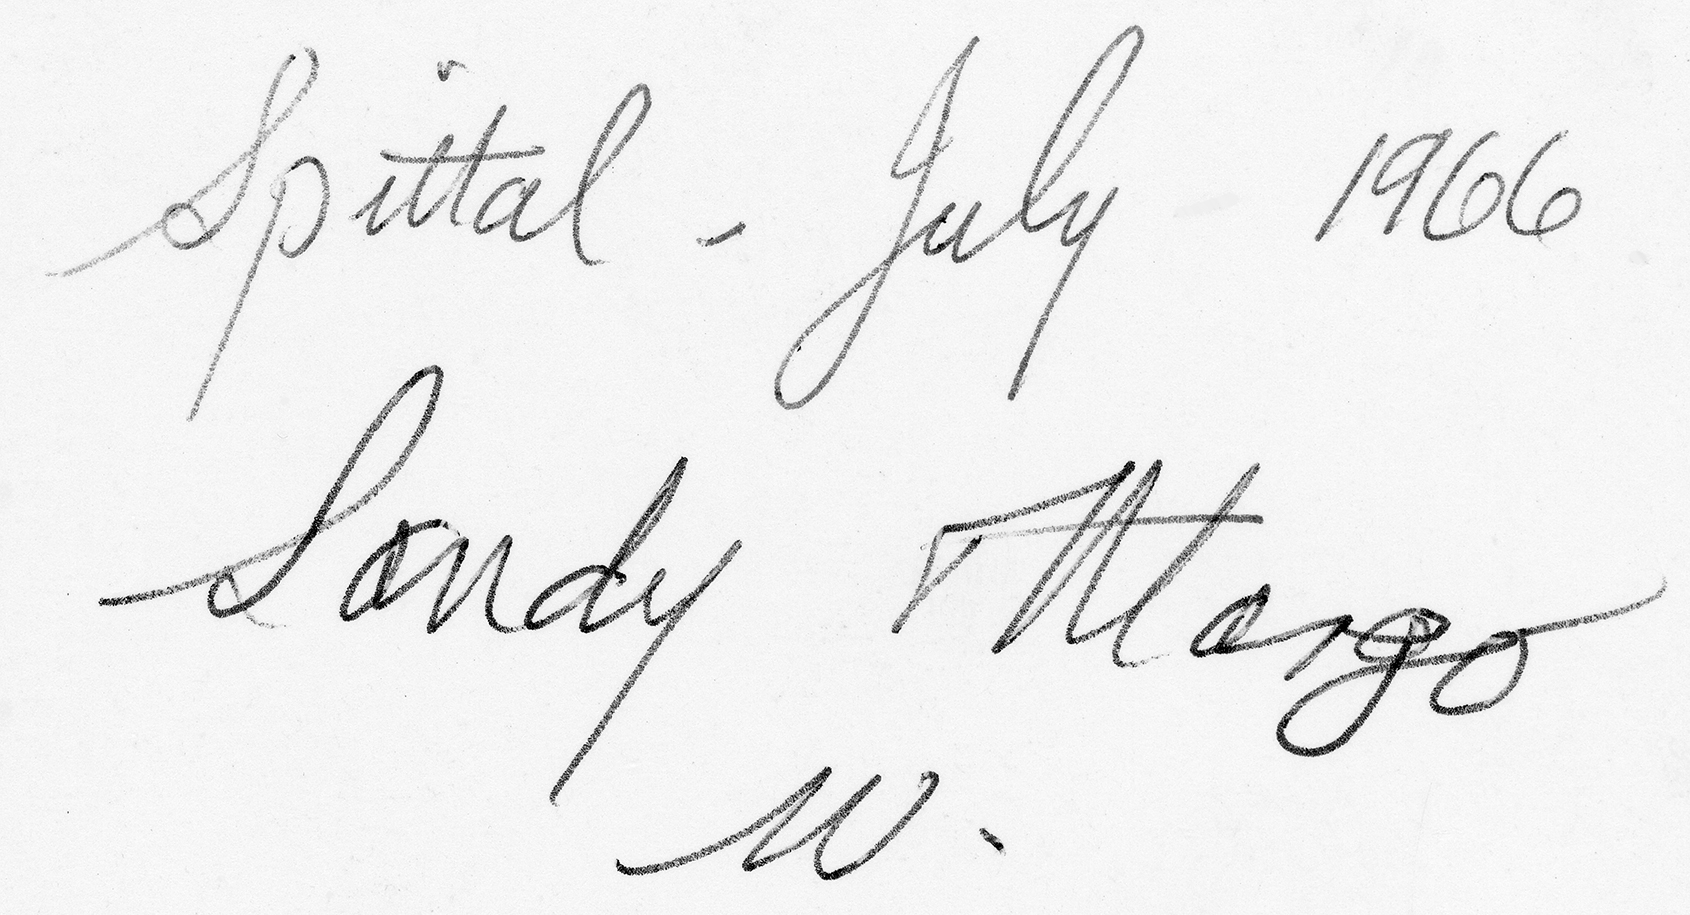 Spittal - July 1966
Sandy + Margo
W.